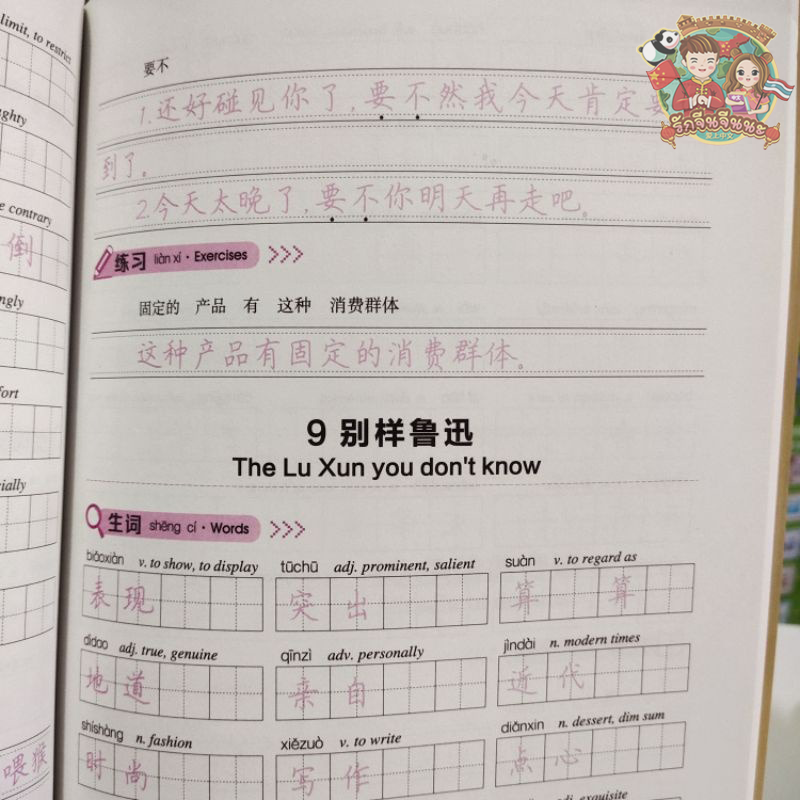 limit, to restrict
ughty
e contrary
倒
ngly
fort
cially
喂猴
要不
1.还好碰见你了,要不然我今天肯定要
到了。
2.今天太晚了,要不你明天再走吧。
练习 liàn xí · Exercises
固定的 产品 有 这种 消费群体
这种产品有固定的消费群体。
9 别样鲁迅
The Lu Xun you don't know
生词 shēng cí · Words
biǎoxiàn v. to show, to display
表现
tūchū adj. prominent, salient
突出
suàn v. to regard as
算 算
dìdao adj. true, genuine
地道
qīnzì adv. personally
亲自
jìndài n. modern times
近代
shíshàng n. fashion
时尚
xiězuò v. to write
写作
diǎnxin n. dessert, dim sum
点心
adj. exquisite
รักจีนจีนนะ
爱上中文